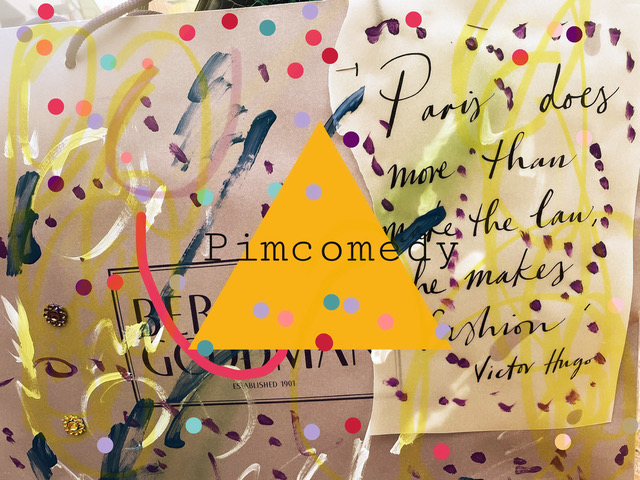 Paris does
more than
make the law,
he makes
fashion
Victor Hugo
Pimcomedy
BER
GOODMAN
ESTABLISHED 1901